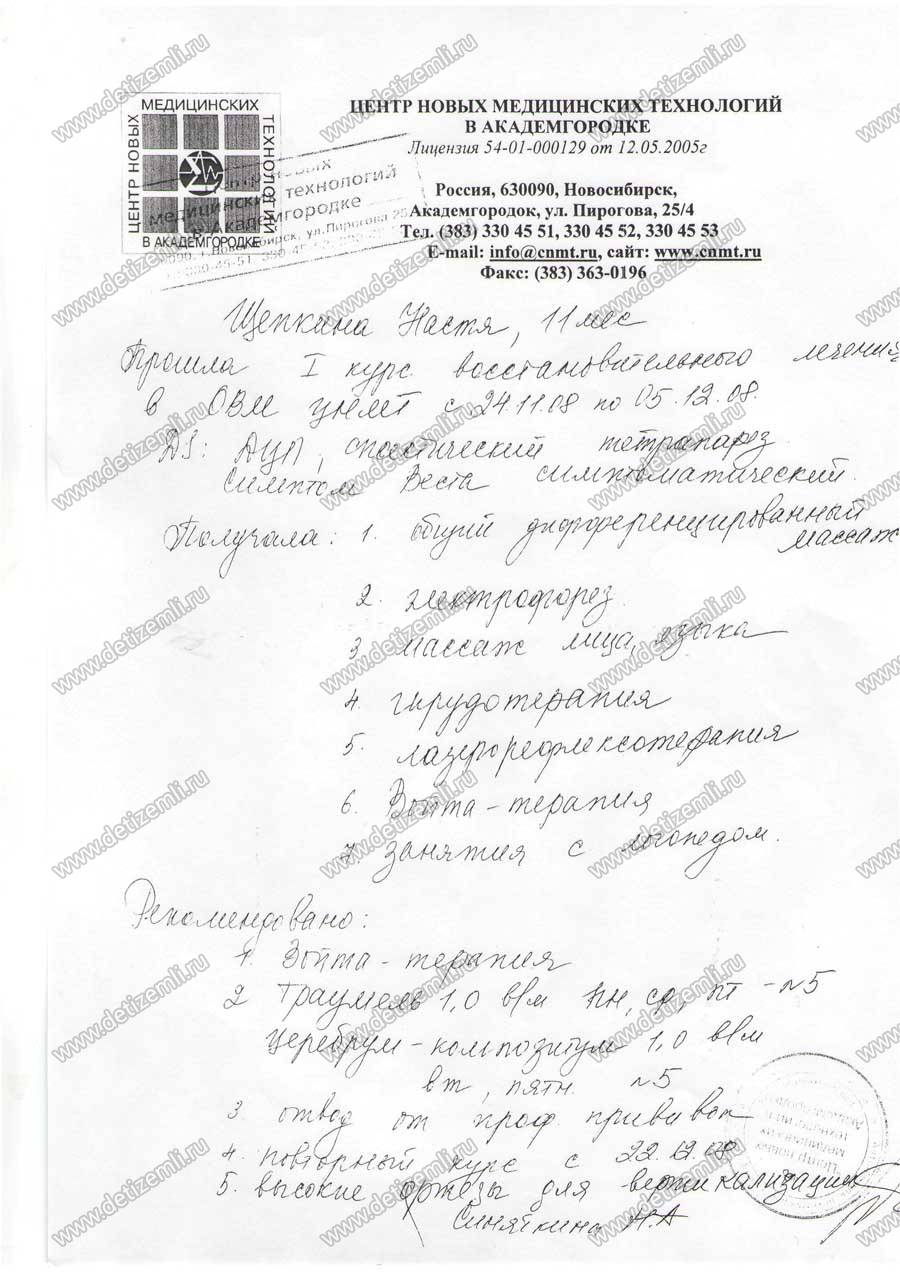 ЦЕНТР НОВЫХ МЕДИЦИНСКИХ ТЕХНОЛОГИЙ
В АКАДЕМГОРОДКЕ
Лицензия 54-01-000129 от 12.05.2005г
Россия, 630090, Новосибирск,
Академгородок, ул. Пирогова, 25/4
Тел. (383) 330 45 51, 330 45 52, 330 45 53
E-mail: info@cnmt.ru, сайт: www.cnmt.ru
Факс: (383) 363-0196
ЦЕНТР НОВЫХ
МЕДИЦИНСКИХ
ТЕХНОЛОГИЙ
В АКАДЕМГОРОДКЕ
медицинских технологий
в Академгородке
Щепкина Настя, 11 мес
Прошла I курс восстановительного лечения
в ОВМ с 24.11.08 по 05.12.08.
DS: ДЦП, спастический тетрапарез
Симптом Веста симптоматический.
Получала: 1. общий дифференцированный
массаж
2. электрофорез
3 массаж лица, языка
4. гирудотерапия
5. лазерорефлексотерапия
6. Войта-терапия
7 занятия с логопедом.
Рекомендовано:
1. Войта-терапия
2 Траумель 1,0 в/м пн, ср, пт - №5
Церебрум-композитум 1,0 в/м
вт, пятн. №5
3 отвод от проф. прививок
4. повторный курс с 22.12.08
5. высокие ортезы для вертикализации
www.detizemli.ru